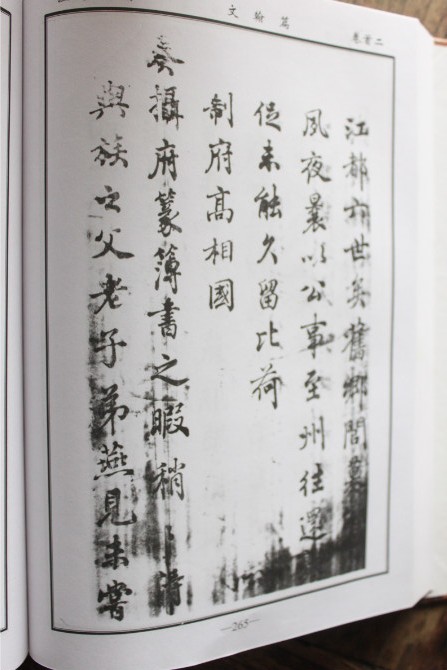 文翰篇
卷首二
江都六世矣舊鄉閭
夙夜曩以公事至州往還
促未能久留比荷
制府高相國
奏攝府篆簿書之暇稍〻清
與族之父老子弟燕見未嘗
—265—